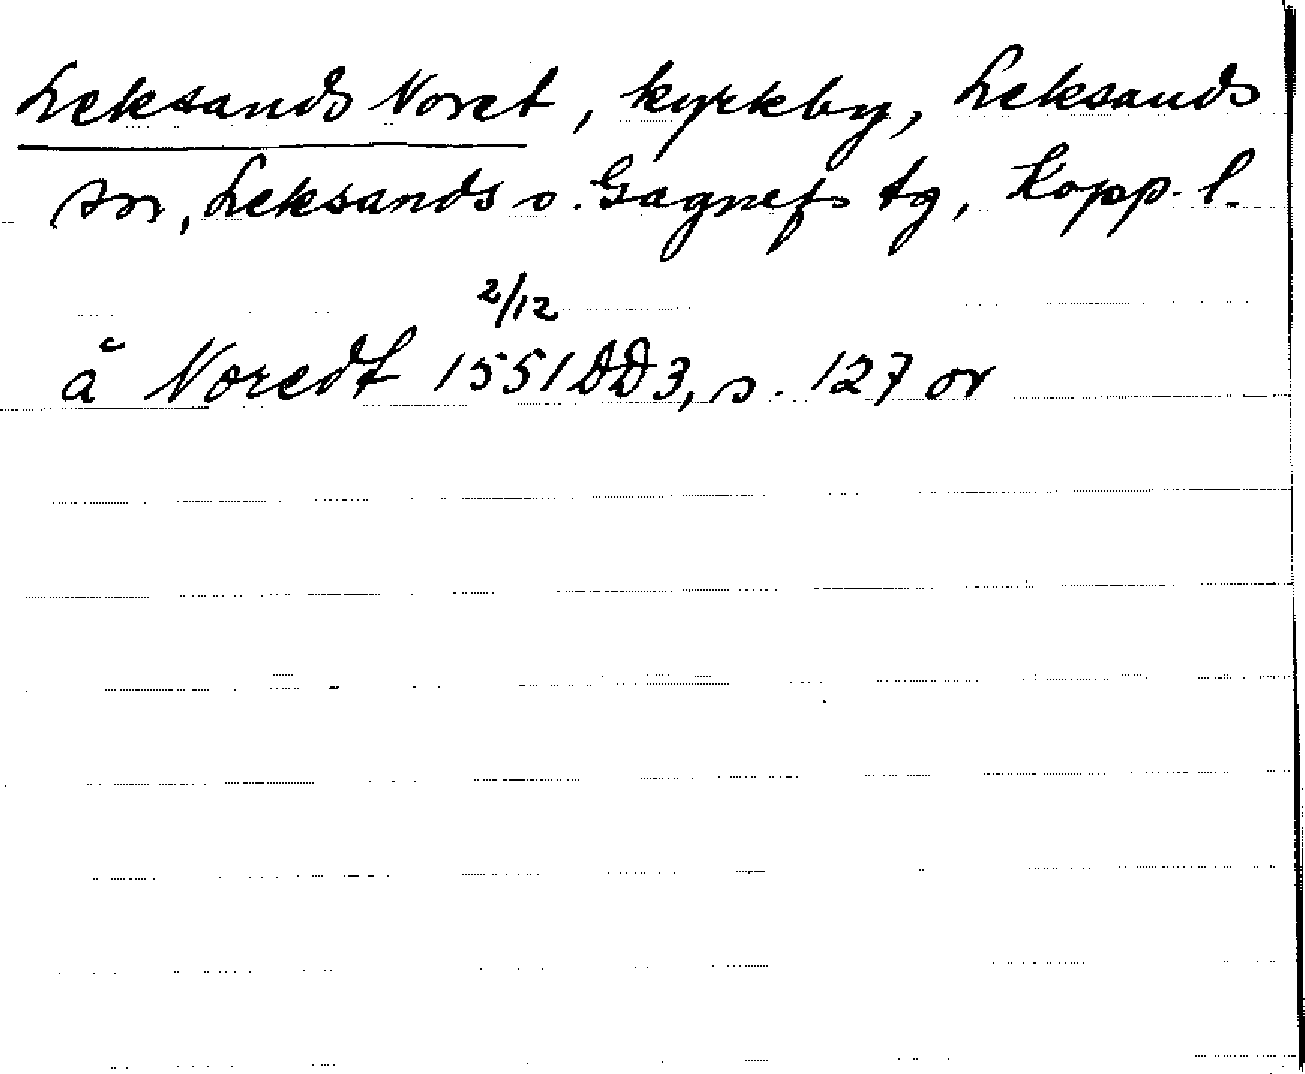 Leksands Noret, kyrkby, Leksands
sn, Leksands o. Gagnefs tg, Kopp. l.
2/12
å Noredt 1551 DD3, s. 127 or